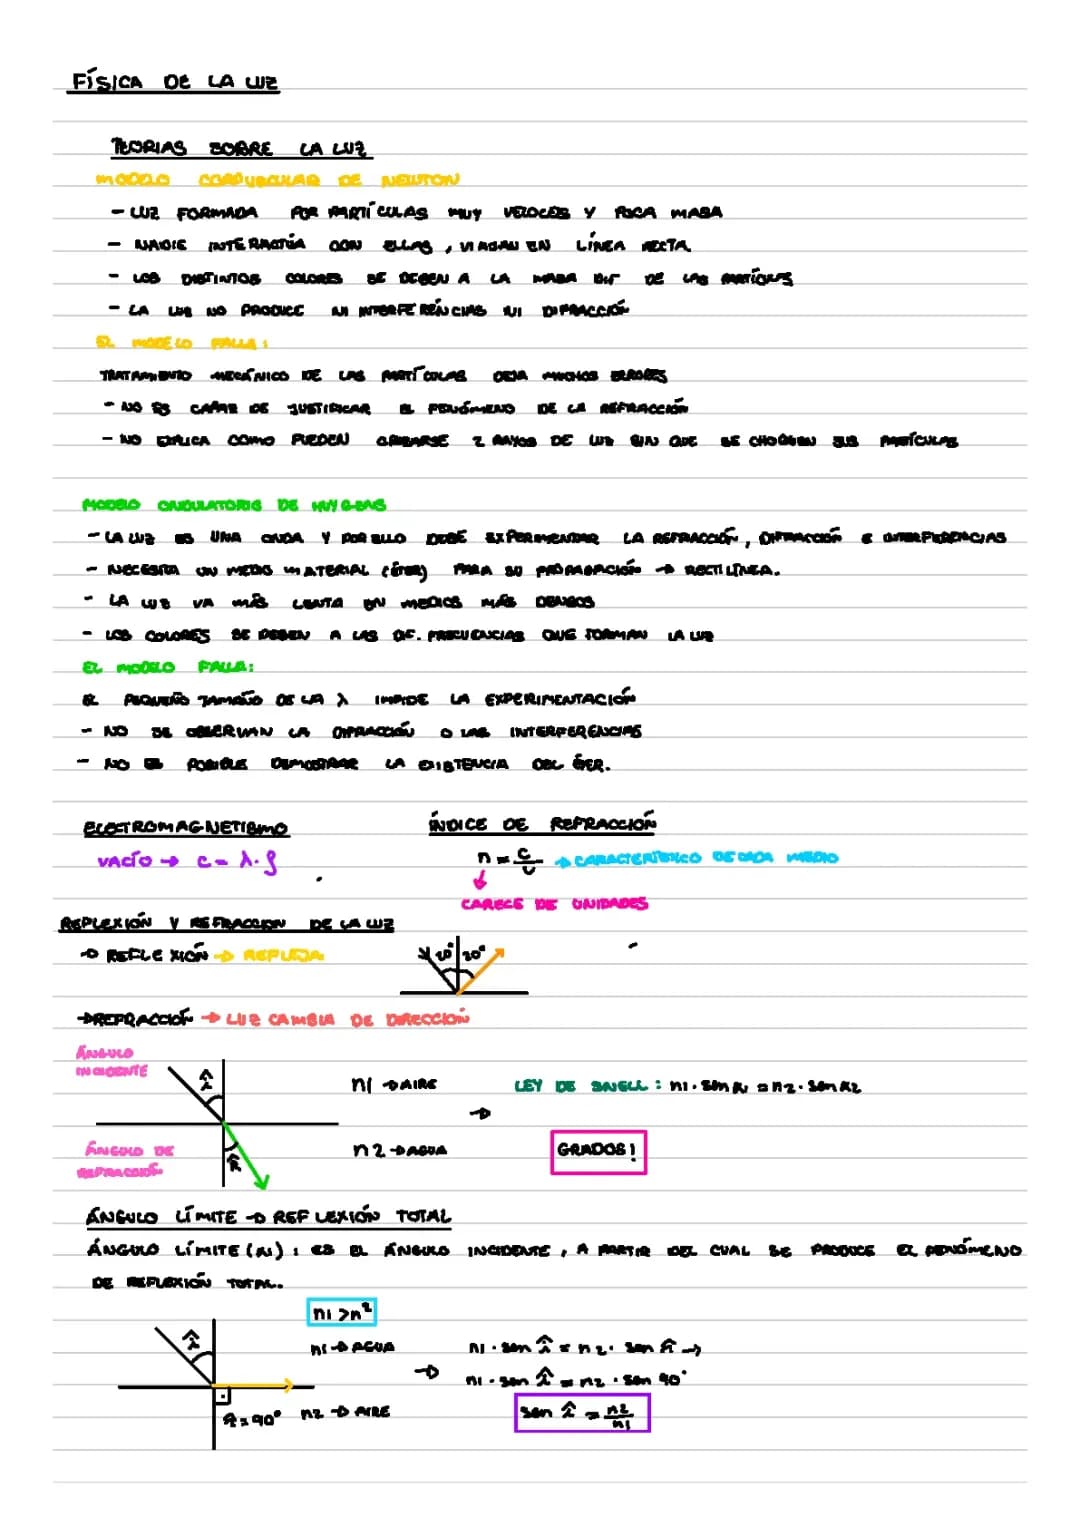 FÍSICA DE LA LUZ
TEORIAS SOBRE LA LUZ
MODELO CORPUSCULAR DE NEWTON
- LUZ FORMADA POR PARTÍCULAS MUY VELOCES Y POCA MASA
- NADIE INTERACTÚA CON ELLAS, VIAJAN EN LÍNEA RECTA
- LOS DISTINTOS COLORES SE DEBEN A LA MASA DIF DE LAS PARTÍCULAS
- LA LUZ NO PRODUCE NI INTERFERENCIAS NI DIFRACCIÓN
EL MODELO FALLA:
TRATAMIENTO MECÁNICO DE LAS PARTÍCULAS DEJA MUCHOS ERRORES
- NO ES CAPAZ DE JUSTIFICAR EL FENÓMENO DE LA REFRACCIÓN
- NO EXPLICA COMO PUEDEN CRUZARSE 2 RAYOS DE LUZ SIN QUE SE CHOQUEN SUS PARTÍCULAS
MODELO ONDULATORIO DE HUYGENS
- LA LUZ ES UNA ONDA Y POR ELLO DEBE EXPERIMENTAR LA REFRACCIÓN, DIFRACCIÓN E INTERFERENCIAS
- NECESITA UN MEDIO MATERIAL (ÉTER) PARA SU PROPAGACIÓN → RECTILÍNEA.
- LA LUZ VA MÁS LENTA EN MEDIOS MÁS DENSOS
- LOS COLORES SE DEBEN A LAS DIF. FRECUENCIAS QUE FORMAN LA LUZ
EL MODELO FALLA:
EL PEQUEÑO TAMAÑO DE LA λ IMPIDE LA EXPERIMENTACIÓN
- NO SE OBSERVAN LA DIFRACCIÓN O LAS INTERFERENCIAS
- NO ES POSIBLE DEMOSTRAR LA EXISTENCIA DEL ÉTER.
ELECTROMAGNETISMO
VACÍO → c = λ · f
ÍNDICE DE REFRACCIÓN
n = c/v → CARACTERÍSTICO DE CADA MEDIO
CARECE DE UNIDADES
REFLEXIÓN Y REFRACCION DE LA LUZ
→ REFLEXIÓN → REFLEJA
20° 20°
→ REFRACCIÓN → LUZ CAMBIA DE DIRECCIÓN
ÁNGULO INCIDENTE
î
n1 → AIRE
LEY DE SNELL: n1 · sen α1 = n2 · sen α2
→
ÁNGULO DE REFRACCIÓN
r̂
n2 → AGUA
GRADOS!
ÁNGULO LÍMITE → REFLEXIÓN TOTAL
ÁNGULO LÍMITE: ES EL ÁNGULO INCIDENTE, A PARTIR DEL CUAL SE PRODUCE EL FENÓMENO
DE REFLEXIÓN TOTAL.
n1 > n²
î
n1 → AGUA
→
n1 · sen î = n2 · sen r̂ →
n1 · sen î = n2 · sen 90°
r̂ = 90°
n2 → AIRE
sen î = n2/n1